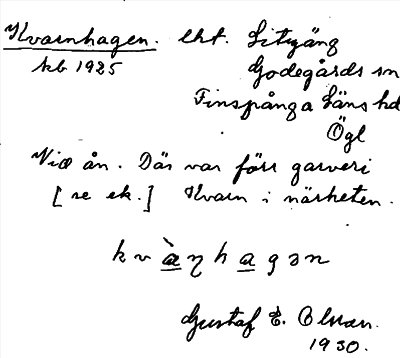 Kvarnhagen. lht. Sitgäng
kb 1925 Godegårds sn
Finspånga Läns hd
Ögl
Vid ån. Där var förr garveri
[se ek.] Kvarn i närheten.
k v à ŋ h a g ə n
Gustaf E. Olsson.
1930.